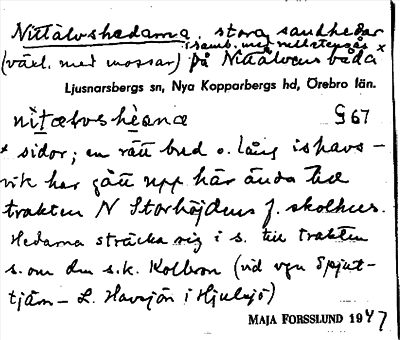 Nittälvshedarna, stora sandhedar
i samb. med rullstensås x
(växl. med mossar) på Nittälvens båda
Ljusnarsbergs sn, Nya Kopparbergs hd, Örebro län.
G 67
x sidor; en rätt bred o. lång ishavs-
vik har gått upp här ända till
trakten N Storhöjdens f. skolhus.
Hedarna sträcka sig i s. till trakten
s. om den s.k. Kolbron (vid vgn Spjut-
tjärn - L. Havsjön i Hjulsjö)
MAJA FORSSLUND 1947